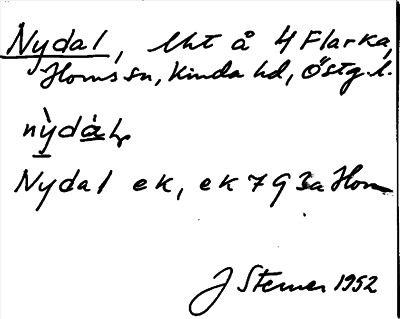 Nydal, lht å 4 Flarka,
Horns sn, Kinda hd, Östg.l.
nỳdàɫ
Nydal ek, ek 7 G 3a Horn
J Sterner 1952